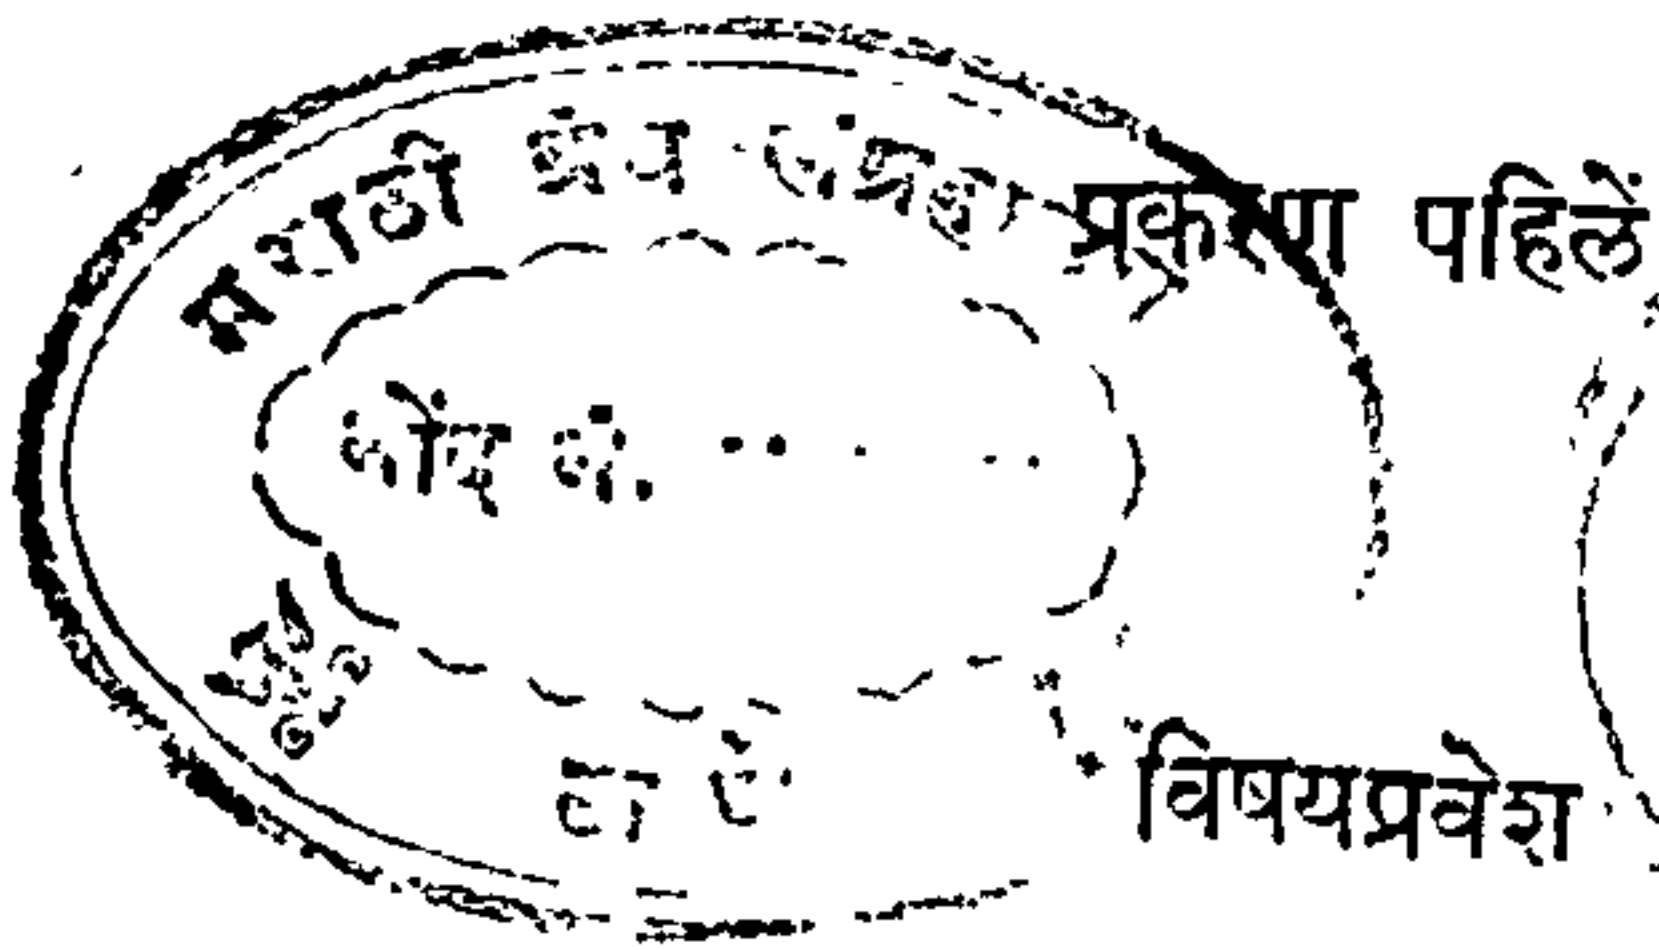 मराठी ग्रंथ संग्रहा
प्रकरण पहिलें
नोंद नं.
विषयप्रवेश